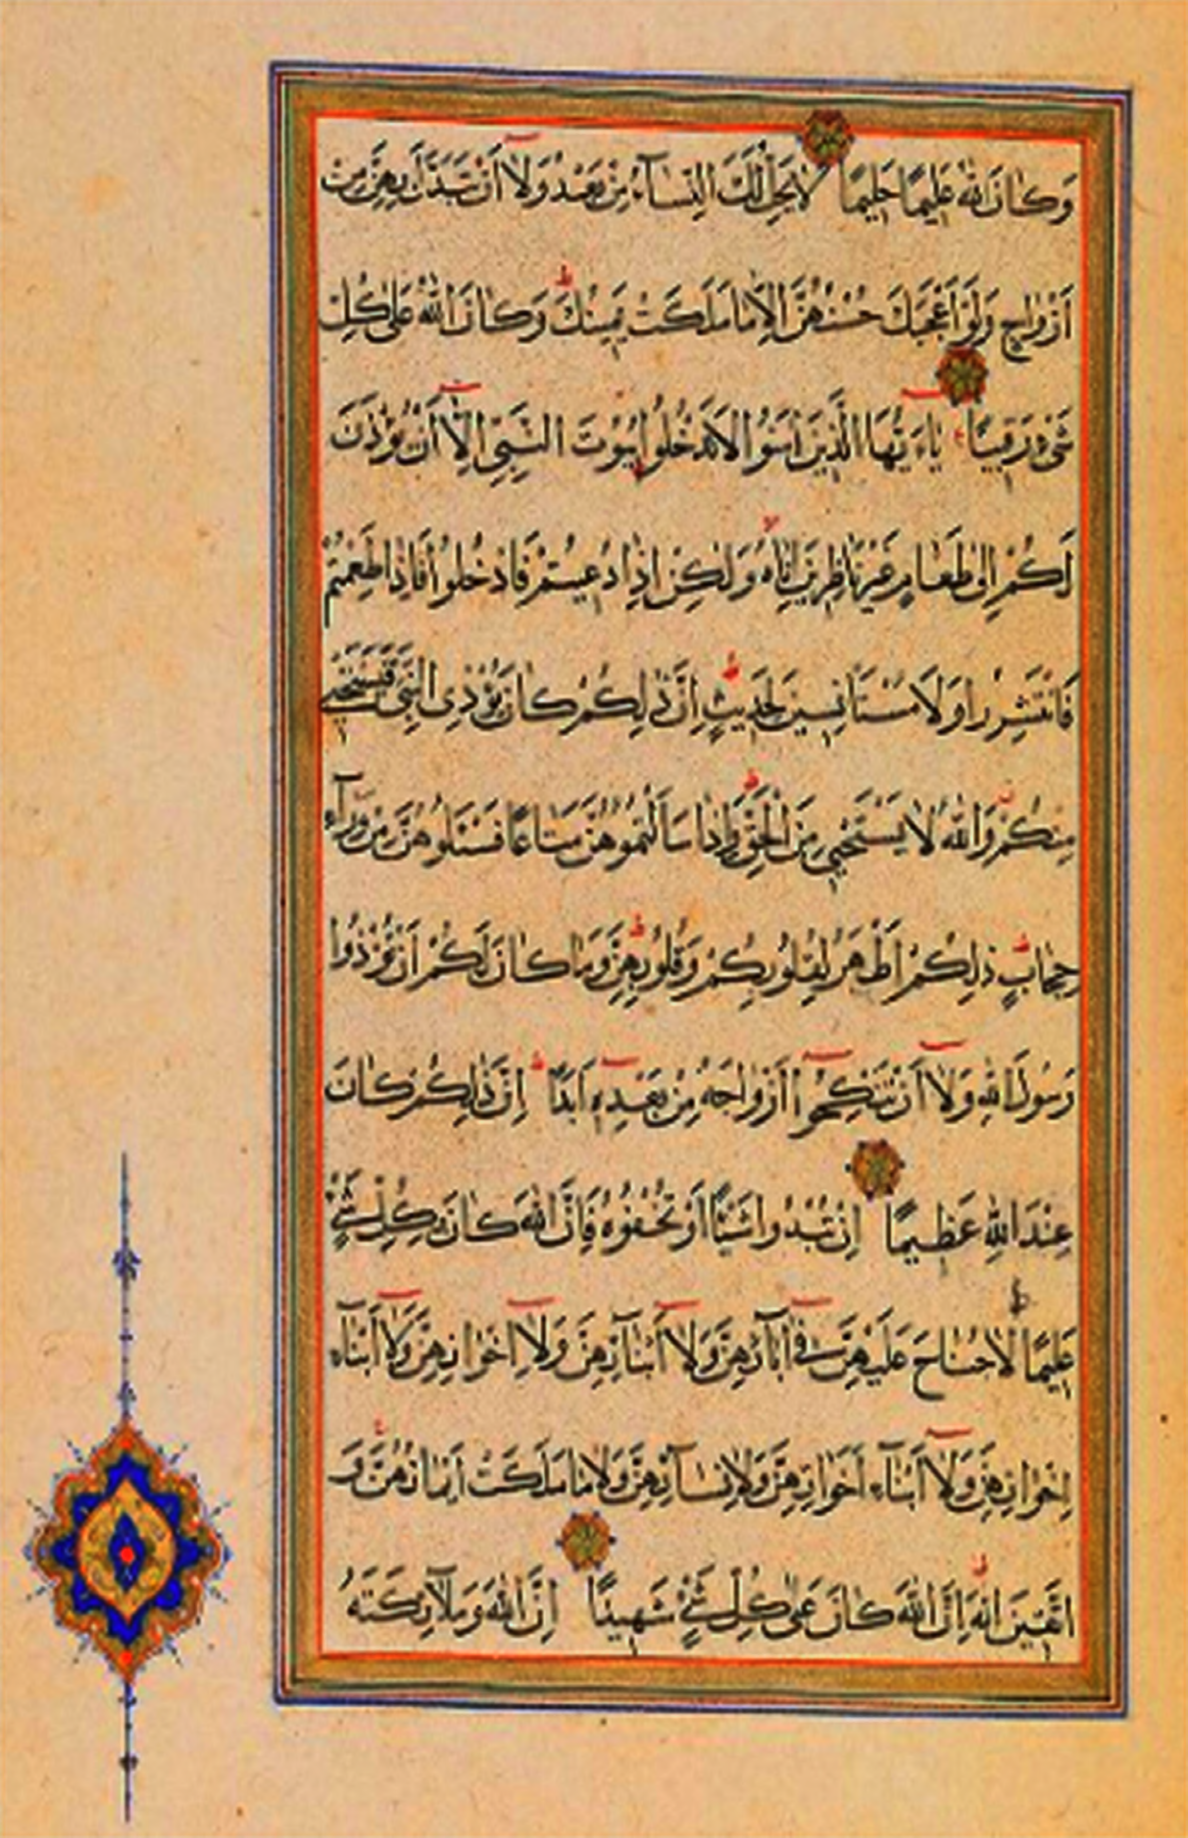 وَكَانَ اللهُ عَلِيمًا حَلِيمًا لَا يَحِلُّ لَكَ النِّسَآءُ مِنْ بَعْدُ وَلَآ اَنْ تَبَدَّلَ بِهِنَّ مِنْ
اَزْوَاجٍ وَلَوْ اَعْجَبَكَ حُسْنُهُنَّ اِلَّا مَا مَلَكَتْ يَمِينُكَ وَكَانَ اللهُ عَلَى كُلِّ
شَىْءٍ رَقِيبًا يَاءَيُّهَا الَّذِينَ اٰمَنُوا لَا تَدْخُلُوا بُيُوتَ النَّبِىِّ اِلَّآ اَنْ يُؤْذَنَ
لَكُمْ اِلَى طَعَامٍ غَيْرَ نَاظِرِينَ اِنَاهُ وَلَكِنْ اِذَا دُعِيتُمْ فَادْخُلُوا فَاِذَا طَعِمْتُمْ
فَانْتَشِرُوا وَلَا مُسْتَاْنِسِينَ لِحَدِيثٍ اِنَّ ذَلِكُمْ كَانَ يُؤْذِى النَّبِىَّ فَيَسْتَحْيِى
مِنْكُمْ وَاللهُ لَا يَسْتَحْيِى مِنَ الْحَقِّ وَاِذَا سَاَلْتُمُوهُنَّ مَتَاعًا فَسْئَلُوهُنَّ مِنْ وَرَآءِ
حِجَابٍ ذَلِكُمْ اَطْهَرُ لِقُلُوبِكُمْ وَقُلُوبِهِنَّ وَمَا كَانَ لَكُمْ اَنْ تُؤْذُوا
رَسُولَ اللهِ وَلَآ اَنْ تَنْكِحُوآ اَزْوَاجَهُ مِنْ بَعْدِهِ اَبَدًا اِنَّ ذَلِكُمْ كَانَ
عِنْدَ اللهِ عَظِيمًا اِنْ تُبْدُوا شَيْئًا اَوْ تُخْفُوهُ فَاِنَّ اللهَ كَانَ بِكُلِّ شَىْءٍ
عَلِيمًا لَا جُنَاحَ عَلَيْهِنَّ فِىٓ اٰبَآئِهِنَّ وَلَآ اَبْنَآئِهِنَّ وَلَآ اِخْوَانِهِنَّ وَلَآ اَبْنَآءِ
اِخْوَانِهِنَّ وَلَآ اَبْنَآءِ اَخَوَاتِهِنَّ وَلَا نِسَآئِهِنَّ وَلَا مَا مَلَكَتْ اَيْمَانُهُنَّ وَ
اتَّقِينَ اللهَ اِنَّ اللهَ كَانَ عَلَى كُلِّ شَىْءٍ شَهِيدًا اِنَّ اللهَ وَمَلَآئِكَتَهُ